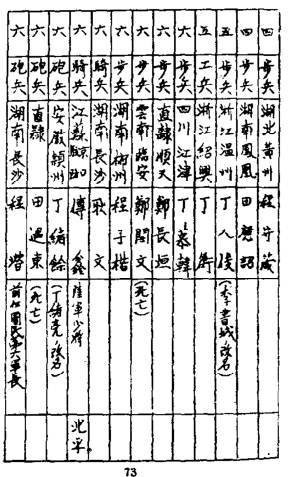 四 步兵 湖北黃州 程守箴
四 步兵 湖南鳳凰 田應詔
五 步兵 浙江溫州 丁人俊 (李書城ノ改名)
五 工兵 浙江紹興 丁
六 步兵 四川江津 丁慕韓
六 步兵 直隸順天 鄭長垣
六 步兵 雲南臨安 鄭開文 (死亡)
六 步兵 湖南 程子楷
六 騎兵 湖南長沙 耿文
六 騎兵 江蘇 傅鑫 陸軍少將 北平
六 砲兵 安徽潁州 丁緒餘 (丁緒堯ノ改名)
六 砲兵 直隸 田遇東 (死亡)
六 砲兵 湖南長沙 程潛 前任國民第六軍長
73